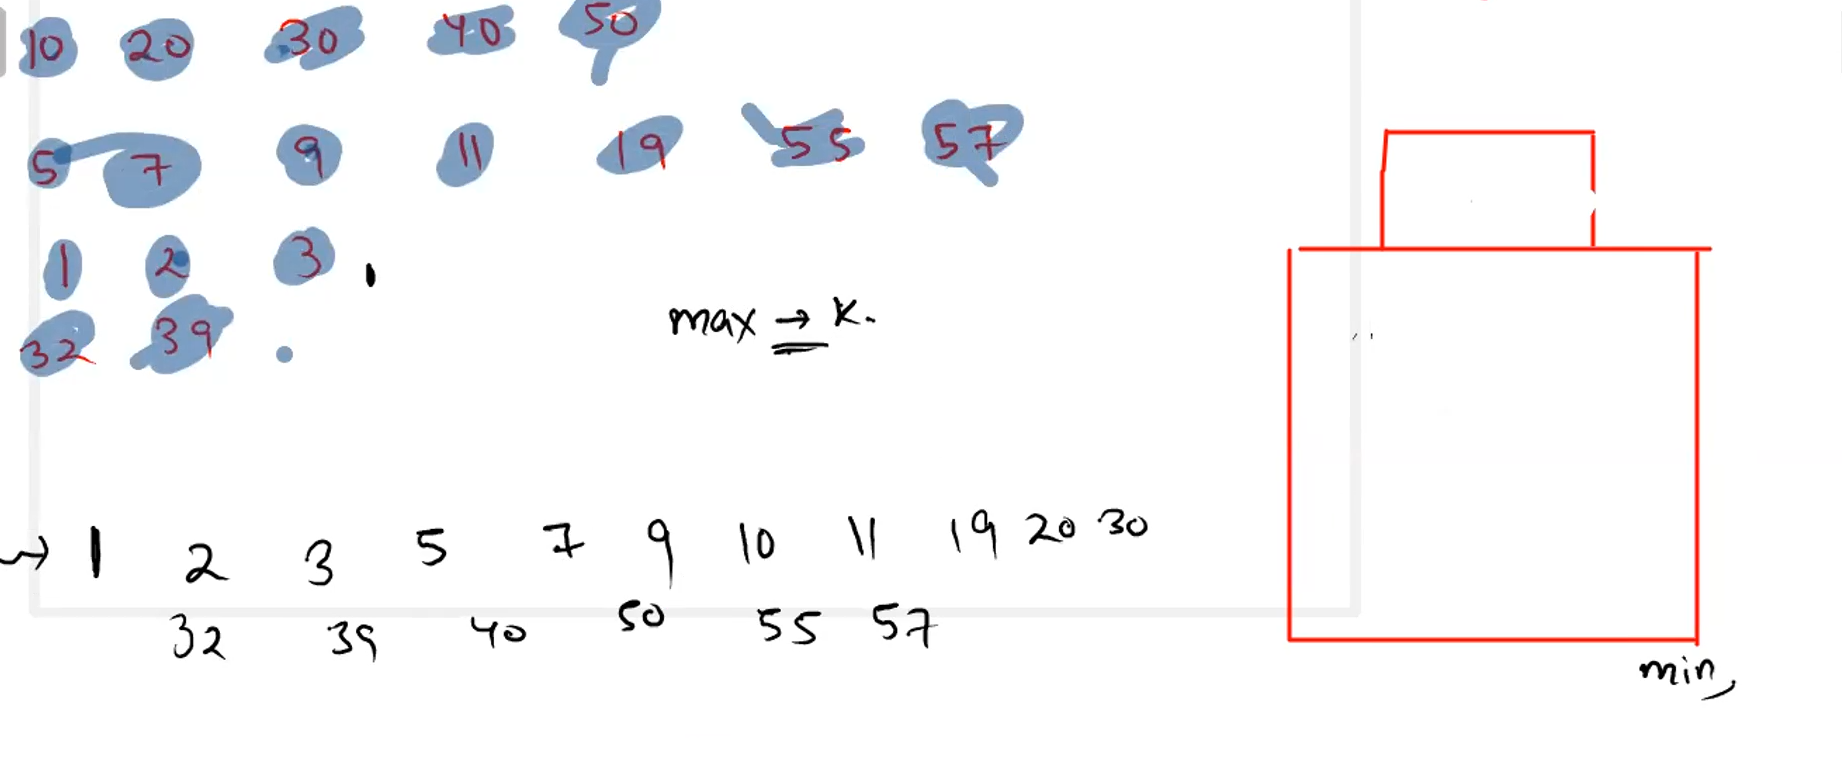 10 20 30 40 50
5 7 9 11 19 55 57
1 2 3
32 39
max → K.
→ 1 2 3 5 7 9 10 11 19 20 30
32 39 40 50 55 57
min,